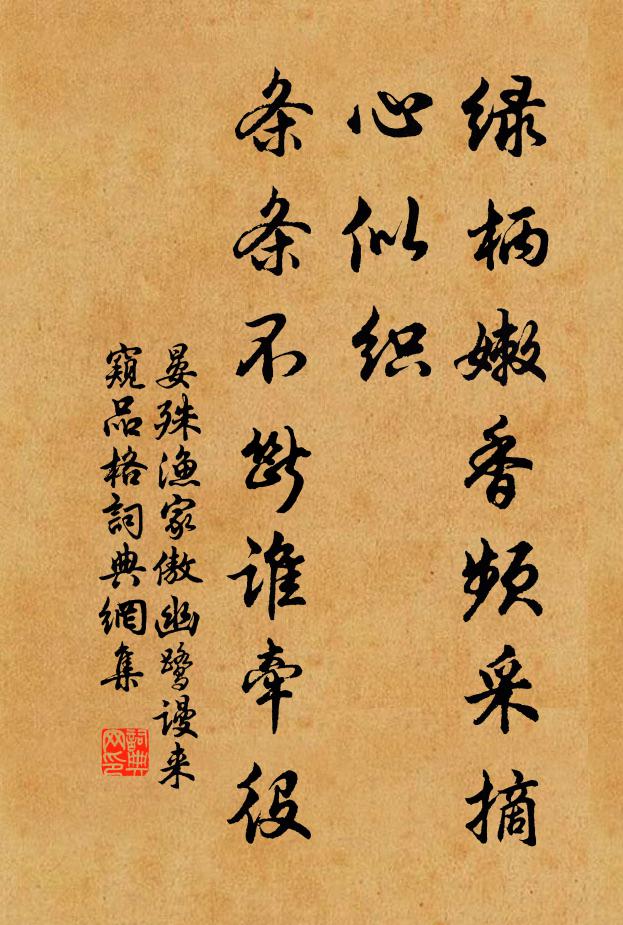 绿柄嫩香频采摘
心似织
条条不断谁牵役
晏殊渔家傲幽鹭谩来
窥品格詞典網集
詞典
网印